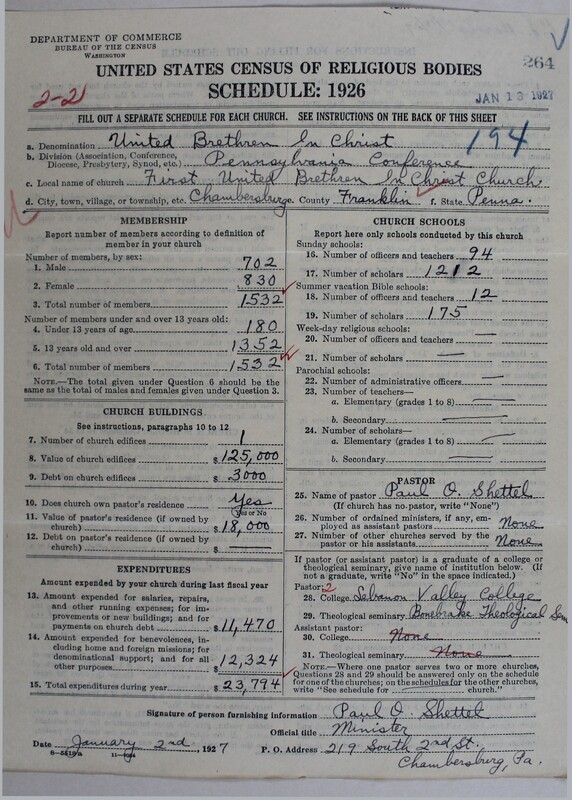 DEPARTMENT OF COMMERCE
BUREAU OF THE CENSUS
WASHINGTON
264
UNITED STATES CENSUS OF RELIGIOUS BODIES
SCHEDULE: 1926
2-21
JAN 13 1927
FILL OUT A SEPARATE SCHEDULE FOR EACH CHURCH. SEE INSTRUCTIONS ON THE BACK OF THIS SHEET
194
a. Denomination United Brethren In Christ
b. Division (Association, Conference, Diocese, Presbytery, Synod, etc.) Pennsylvania Conference
c. Local name of church First United Brethren In Christ Church.
d. City, town, village, or township, etc. Chambersburg e. County Franklin f. State Penna.
MEMBERSHIP
Report number of members according to definition of
member in your church
Number of members, by sex:
1. Male 702
2. Female 830
3. Total number of members 1532
Number of members under and over 13 years old:
4. Under 13 years of age 180
5. 13 years old and over 1352
6. Total number of members 1532
NOTE.—The total given under Question 6 should be
same as the total of males and females given under Question 3.
CHURCH BUILDINGS
See instructions, paragraphs 10 to 12
7. Number of church edifices 1
8. Value of church edifices $125,000
9. Debt on church edifices $3000
10. Does church own pastor's residence? Yes
Yes or No
11. Value of pastor's residence (if owned by
church) $18,000
12. Debt on pastor's residence (if owned by
church) $
EXPENDITURES
Amount expended by your church during last fiscal year
13. Amount expended for salaries, repairs,
and other running expenses; for im-
provements or new buildings; and for
payments on church debt $11,470
14. Amount expended for benevolences, in-
cluding home and foreign missions; for
denominational support; and for all
other purposes $12,324
15. Total expenditures during year $23,794
CHURCH SCHOOLS
Report here only schools conducted by this church
Sunday schools:
16. Number of officers and teachers 94
17. Number of scholars 1212
Summer vacation Bible schools:
18. Number of officers and teachers 12
19. Number of scholars 175
Week-day religious schools:
20. Number of officers and teachers
21. Number of scholars
Parochial schools:
22. Number of administrative officers
23. Number of teachers—
a. Elementary (grades 1 to 8)
b. Secondary
24. Number of scholars—
a. Elementary (grades 1 to 8)
b. Secondary
PASTOR
25. Name of pastor Paul O. Shettel
(If church has no pastor, write "None")
26. Number of ordained ministers, if any, em-
ployed as assistant pastors None
27. Number of other churches served by the
pastor or his assistants None
If pastor (or assistant pastor) is a graduate of a college or
theological seminary, give name of institution below. (If
not a graduate, write "No" in the space indicated.)
Pastor: 2
28. College Lebanon Valley College
29. Theological seminary Bonebrake Theological Sem
Assistant pastor:
30. College None
31. Theological seminary None
NOTE.—Where one pastor serves two or more churches,
Questions 28 and 29 should be answered only on the schedule
for one of the churches; on the schedules for the other churches,
write "See schedule for church."
Signature of person furnishing information Paul O. Shettel
Official title Minister
Date January 2nd, 1927 P. O. Address 219 South 2nd St.
Chambersburg, Pa.